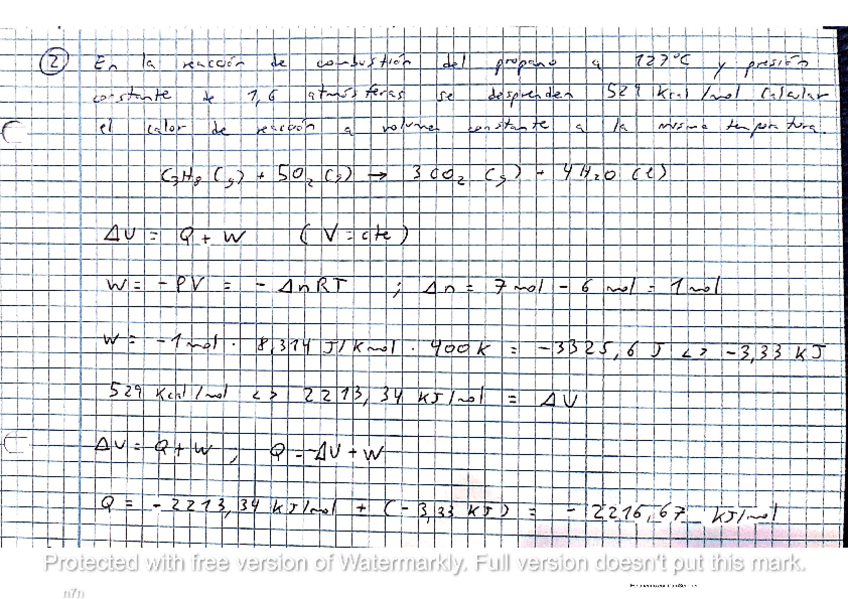 2 En la reacción de combustión del propano a 127ºC y presión
constante de 1,6 atmósferas se desprenden 529 Kcal/mol Calcular
el calor de reacción a volumen constante a la misma temperatura.
C3H8 (g) + 5O2 (g) → 3CO2 (g) + 4H2O (l)
ΔU = Q + W (V = cte)
W = -PV = - ΔnRT ; Δn = 7 mol - 6 mol = 1 mol
W = -1 mol · 8,314 J/Kmol · 400 K = -3325,6 J <> -3,33 KJ
529 Kcal/mol <> 2213,34 KJ/mol = ΔU
ΔU = Q + W ; Q = -ΔU + W
Q = -2213,34 KJ/mol + (-3,33 KJ) = -2216,67 KJ/mol
Protected with free version of Watermarkly. Full version doesn't put this mark.
n7n